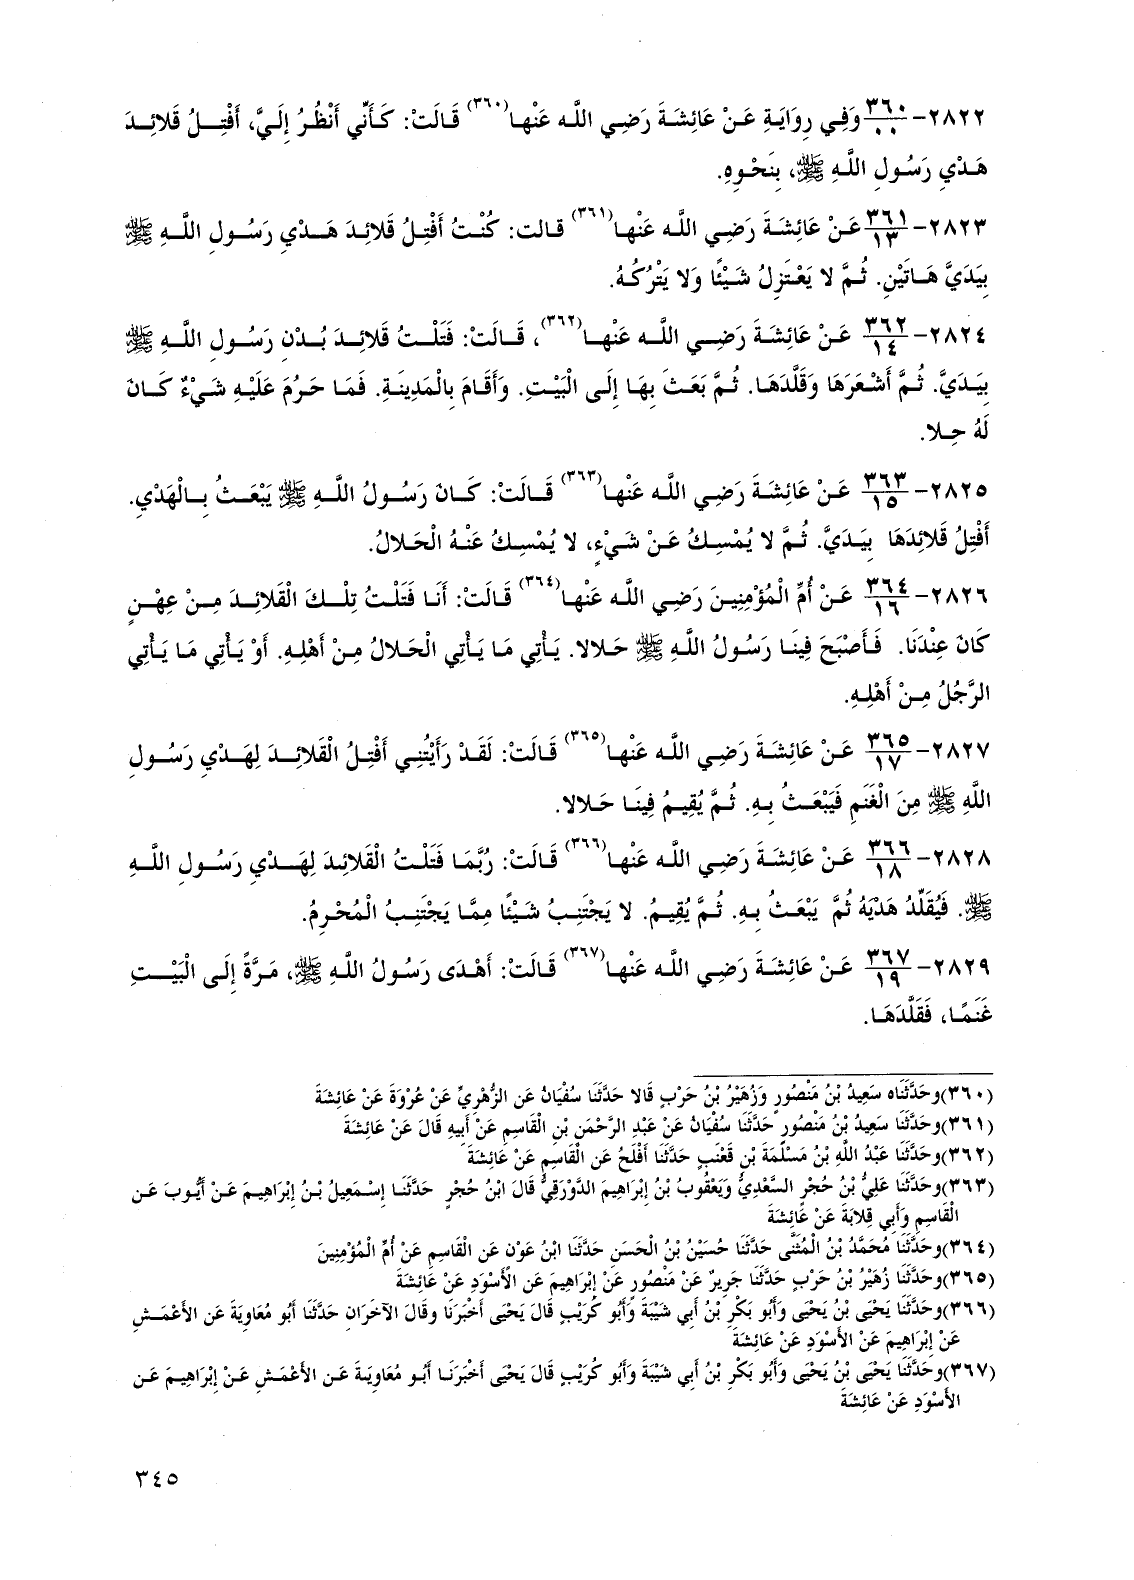 ٢٨٢٢- ٣٦٠/٠٠ وَفِي رِوَايَةِ عَنْ عَائِشَةَ رَضِي اللَّه عَنْها(٣٦٠) قَالَتْ: كَأَنِّي أَنْظُرُ إِلَيَّ، أَفْتِلُ قَلائِدَ
هَدْيِ رَسُولِ اللَّهِ ﷺ، بِنَحْوِهِ.
٢٨٢٣- ٣٦١/١٣ عَنْ عَائِشَةَ رَضِي اللَّه عَنْها(٣٦١) قالت: كُنْتُ أَفْتِلُ قَلائِدَ هَدْيِ رَسُولِ اللَّهِ ﷺ
بِيَدَيَّ هَاتَيْنِ. ثُمَّ لا يَعْتَزِلُ شَيْئًا وَلا يَتْرُكُهُ.
٢٨٢٤- ٣٦٢/١٤ عَنْ عَائِشَةَ رَضِي اللَّه عَنْها(٣٦٢)، قَالَتْ: فَتَلْتُ قَلائِدَ بُدْنِ رَسُولِ اللَّهِ ﷺ
بِيَدَيَّ. ثُمَّ أَشْعَرَهَا وَقَلَّدَهَا. ثُمَّ بَعَثَ بِهَا إِلَى الْبَيْتِ. وَأَقَامَ بِالْمَدِينَةِ. فَمَا حَرُمَ عَلَيْهِ شَيْءٌ كَانَ
لَهُ حِلا.
٢٨٢٥- ٣٦٣/١٥ عَنْ عَائِشَةَ رَضِي اللَّه عَنْها(٣٦٣) قَالَتْ: كَانَ رَسُولُ اللَّهِ ﷺ يَبْعَثُ بِالْهَدْيِ.
أَفْتِلُ قَلائِدَهَا بِيَدَيَّ. ثُمَّ لا يُمْسِكُ عَنْ شَيْءٍ، لا يُمْسِكُ عَنْهُ الْحَلالُ.
٢٨٢٦- ٣٦٤/١٦ عَنْ أُمِّ الْمُؤْمِنِينَ رَضِي اللَّه عَنْها(٣٦٤) قَالَتْ: أَنَا فَتَلْتُ تِلْكَ الْقَلائِدَ مِنْ عِهْنٍ
كَانَ عِنْدَنَا. فَأَصْبَحَ فِينَا رَسُولُ اللَّهِ ﷺ حَلالا. يَأْتِي مَا يَأْتِي الْحَلالُ مِنْ أَهْلِهِ. أَوْ يَأْتِي مَا يَأْتِي
الرَّجُلُ مِنْ أَهْلِهِ.
٢٨٢٧- ٣٦٥/١٧ عَنْ عَائِشَةَ رَضِي اللَّه عَنْها(٣٦٥) قَالَتْ: لَقَدْ رَأَيْتُنِي أَفْتِلُ الْقَلائِدَ لِهَدْيِ رَسُولِ
اللَّهِ ﷺ مِنَ الْغَنَمِ فَيَبْعَثُ بِهِ. ثُمَّ يُقِيمُ فِينَا حَلالا.
٢٨٢٨- ٣٦٦/١٨ عَنْ عَائِشَةَ رَضِي اللَّه عَنْها(٣٦٦) قَالَتْ: رُبَّمَا فَتَلْتُ الْقَلائِدَ لِهَدْيِ رَسُولِ اللَّهِ
ﷺ. فَيُقَلِّدُ هَدْيَهُ ثُمَّ يَبْعَثُ بِهِ. ثُمَّ يُقِيمُ. لا يَجْتَنِبُ شَيْئًا مِمَّا يَجْتَنِبُ الْمُحْرِمُ.
٢٨٢٩- ٣٦٧/١٩ عَنْ عَائِشَةَ رَضِي اللَّه عَنْها(٣٦٧) قَالَتْ: أَهْدَى رَسُولُ اللَّهِ ﷺ، مَرَّةً إِلَى الْبَيْتِ
غَنَمًا، فَقَلَّدَهَا.
(٣٦٠)وحَدَّثَنَاه سَعِيدُ بْنُ مَنْصُورٍ وَزُهَيْرُ بْنُ حَرْبٍ قَالا حَدَّثَنَا سُفْيَانُ عَنِ الزُّهْرِيِّ عَنْ عُرْوَةَ عَنْ عَائِشَةَ
(٣٦١)وحَدَّثَنَا سَعِيدُ بْنُ مَنْصُورٍ حَدَّثَنَا سُفْيَانُ عَنْ عَبْدِ الرَّحْمَنِ بْنِ الْقَاسِمِ عَنْ أَبِيهِ قَالَ عَنْ عَائِشَةَ
(٣٦٢)وحَدَّثَنَا عَبْدُ اللَّهِ بْنُ مَسْلَمَةَ بْنِ قَعْنَبٍ حَدَّثَنَا أَفْلَحُ عَنِ الْقَاسِمِ عَنْ عَائِشَةَ
(٣٦٣)وحَدَّثَنَا عَلِيُّ بْنُ حُجْرٍ السَّعْدِيُّ وَيَعْقُوبُ بْنُ إِبْرَاهِيمَ الدَّوْرَقِيُّ قَالَ ابْنُ حُجْرٍ حَدَّثَنَا إِسْمَعِيلُ بْنُ إِبْرَاهِيمَ عَنْ أَيُّوبَ عَنِ
الْقَاسِمِ وَأَبِي قِلابَةَ عَنْ عَائِشَةَ
(٣٦٤)وحَدَّثَنَا مُحَمَّدُ بْنُ الْمُثَنَّى حَدَّثَنَا حُسَيْنُ بْنُ الْحَسَنِ حَدَّثَنَا ابْنُ عَوْنٍ عَنِ الْقَاسِمِ عَنْ أُمِّ الْمُؤْمِنِينَ
(٣٦٥)وحَدَّثَنَا زُهَيْرُ بْنُ حَرْبٍ حَدَّثَنَا جَرِيرٌ عَنْ مَنْصُورٍ عَنْ إِبْرَاهِيمَ عَنِ الأَسْوَدِ عَنْ عَائِشَةَ
(٣٦٦)وحَدَّثَنَا يَحْيَى بْنُ يَحْيَى وَأَبُو بَكْرِ بْنُ أَبِي شَيْبَةَ وَأَبُو كُرَيْبٍ قَالَ يَحْيَى أَخْبَرَنَا وقَالَ الآخَرَانِ حَدَّثَنَا أَبُو مُعَاوِيَةَ عَنِ الأَعْمَشِ
عَنْ إِبْرَاهِيمَ عَنِ الأَسْوَدِ عَنْ عَائِشَةَ
(٣٦٧)وحَدَّثَنَا يَحْيَى بْنُ يَحْيَى وَأَبُو بَكْرِ بْنُ أَبِي شَيْبَةَ وَأَبُو كُرَيْبٍ قَالَ يَحْيَى أَخْبَرَنَا أَبُو مُعَاوِيَةَ عَنِ الأَعْمَشِ عَنْ إِبْرَاهِيمَ عَنِ
الأَسْوَدِ عَنْ عَائِشَةَ
٣٤٥